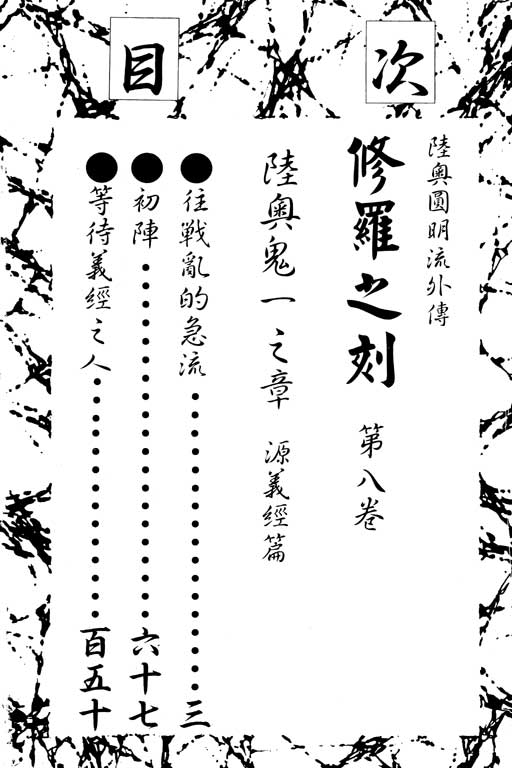 目次
陸奥圓明流外傳
修羅之刻 第八卷
陸奥鬼一之章 源義經篇
●往戦亂的急流••••••••••••三
●初陣••••••••••••••••六十七
●等待義經之人•••••••••••百五十